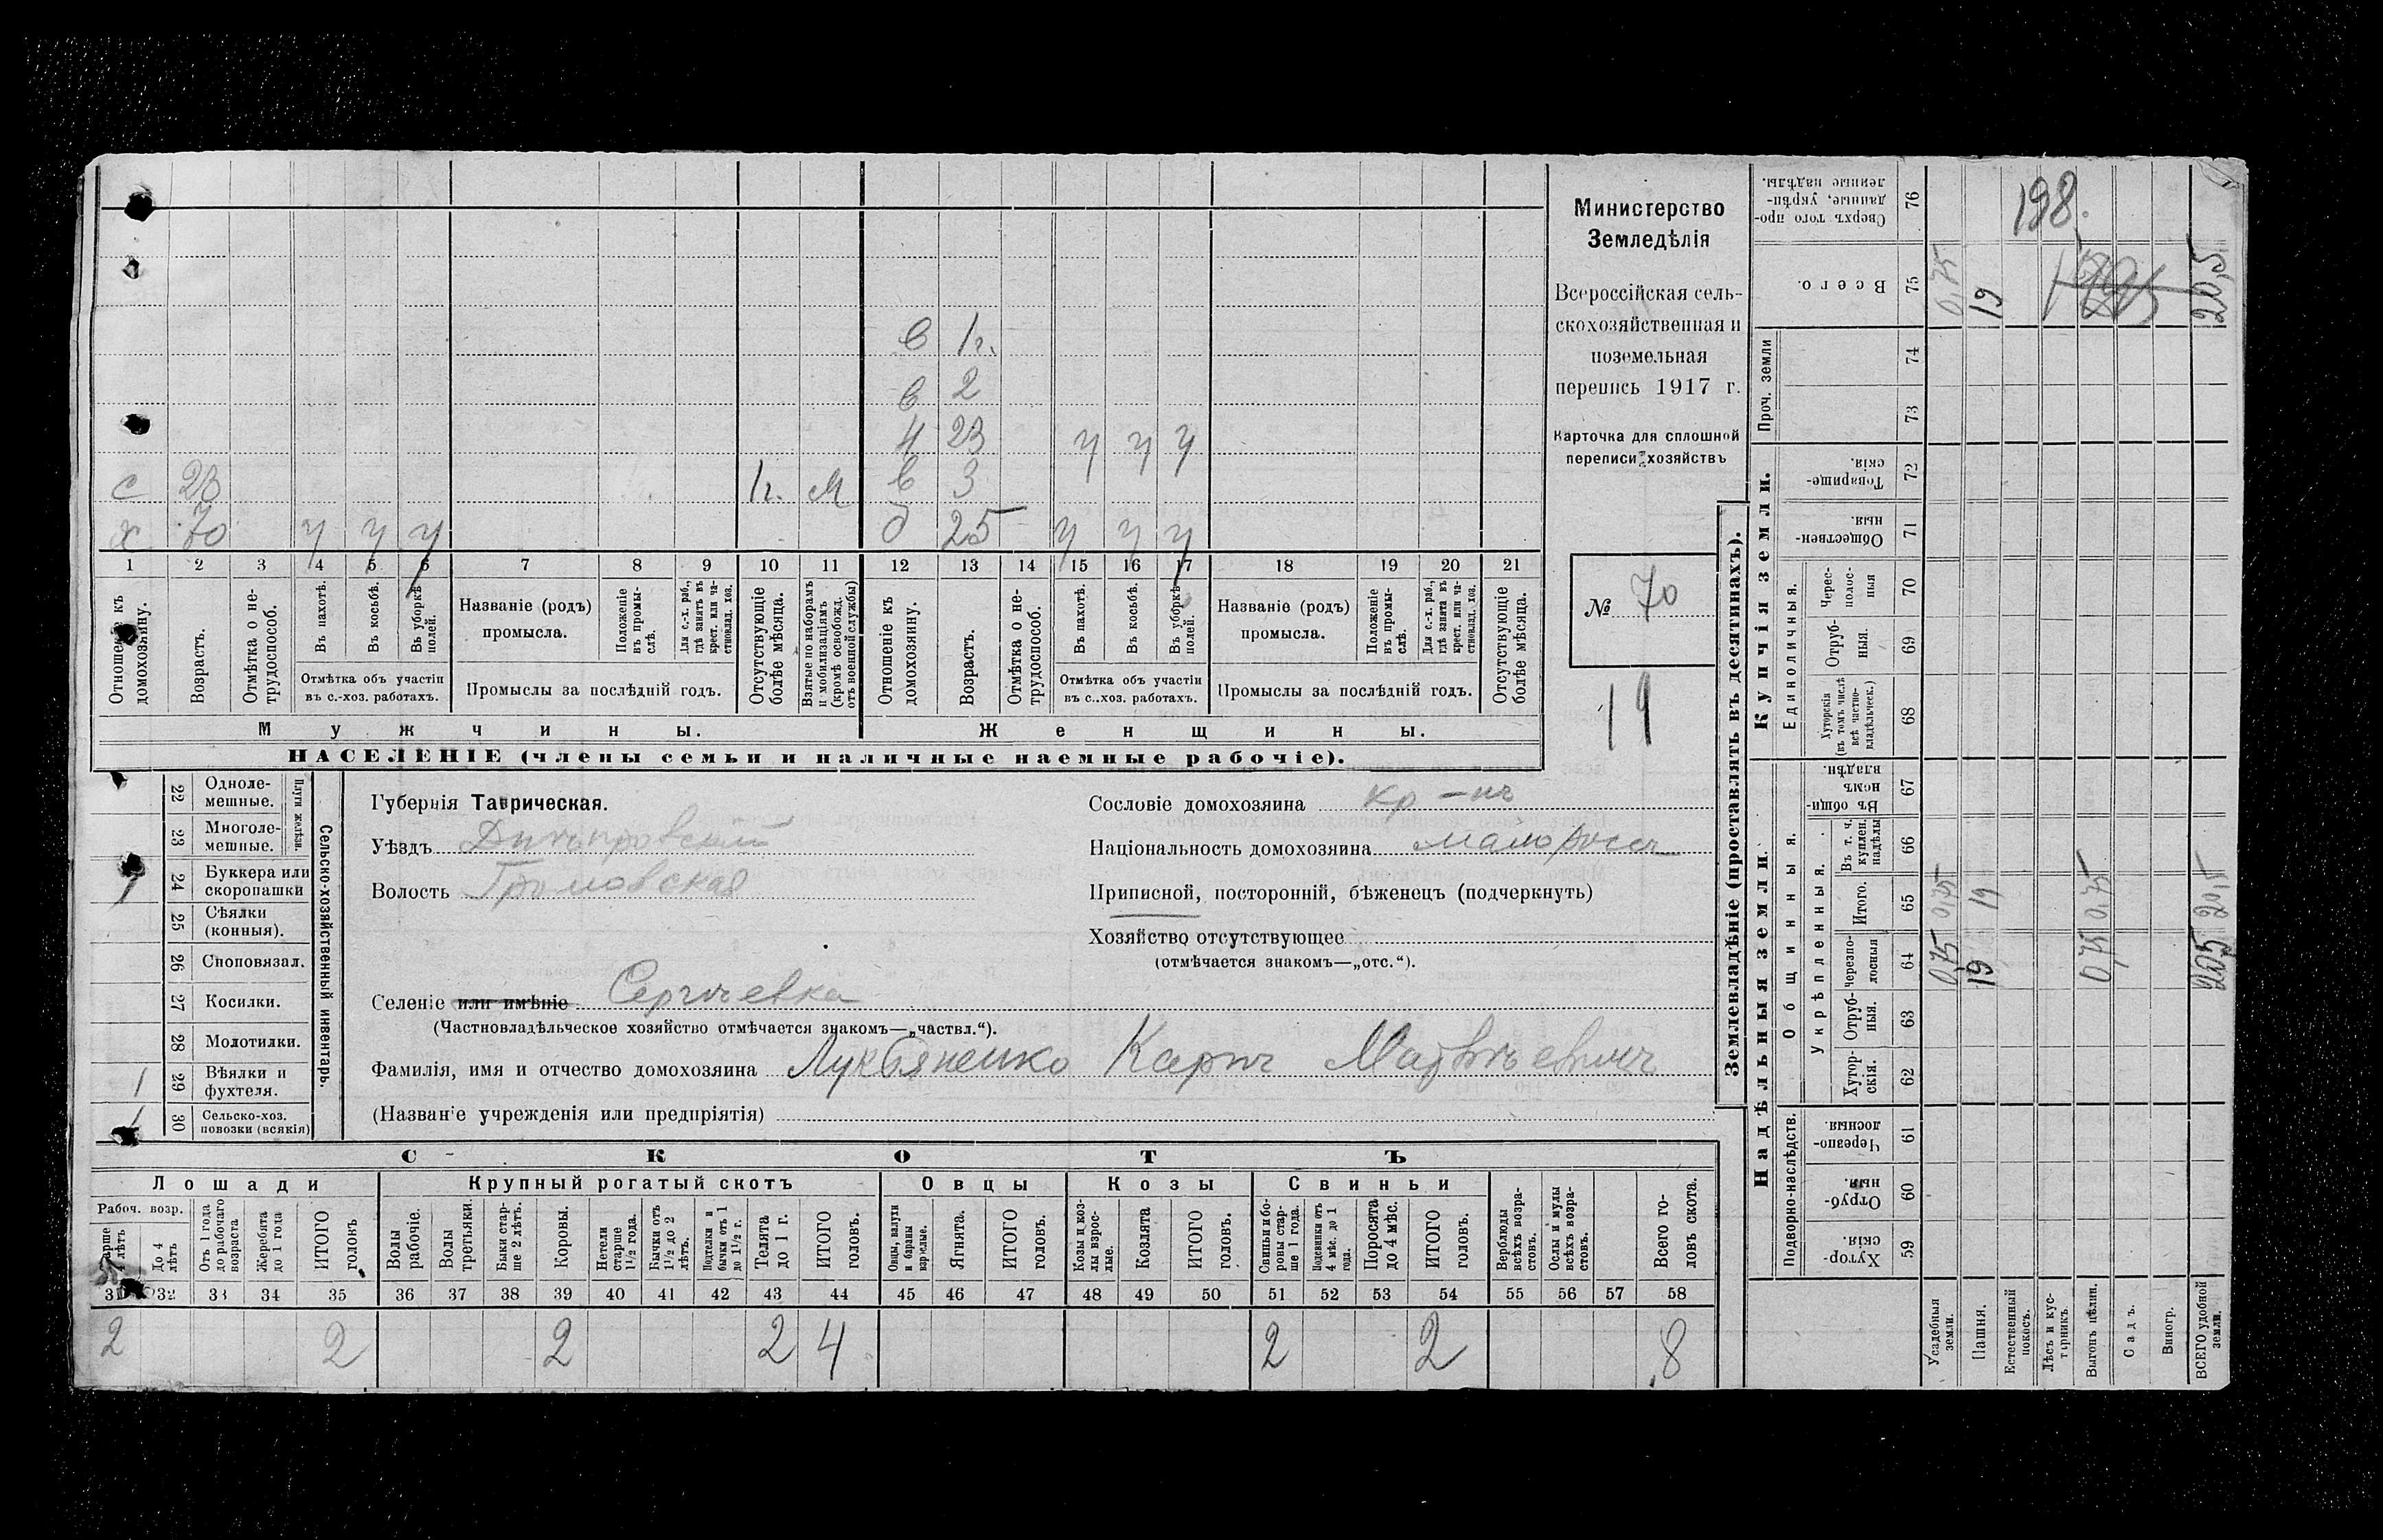 Министерство
Земледѣлія
Всероссійская сель-
скохозяйственная и
поземельная
перепись 1917 г.
Карточка для сплошной
переписи хозяйствъ
№ 70
19
в 1г.
в 2
Н 23 у у у
с 23 1г. м в 3
х 70 у у у д 25 у у у
1 2 3 4 5 6 7 8 9 10 11 12 13 14 15 16 17 18 19 20 21
Отношеніе къ домохозяину.
Возрастъ.
Отмѣтка о не-трудоспособ.
Въ пахотѣ.
Въ косьбѣ.
Въ уборкѣ полей.
Отмѣтка объ участіи въ с.-хоз. работахъ.
Названіе (родъ) промысла.
Положеніе въ промы-слѣ.
Для с.-х. раб., гдѣ занятъ въ крест. или ча-стновлад. хоз.
Промыслы за послѣдній годъ.
Отсутствующіе болѣе мѣсяца.
Взятые по наборамъ и мобилизаціямъ (кромѣ освобожд. отъ военной службы)
Отношеніе къ домохозяину.
Возрастъ.
Отмѣтка о не-трудоспособ.
Въ пахотѣ.
Въ косьбѣ.
Въ уборкѣ полей.
Отмѣтка объ участіи въ с.-хоз. работахъ.
Названіе (родъ) промысла.
Положеніе въ промы-слѣ.
Для с.-х. раб., гдѣ занята въ крест. или ча-стновлад. хоз.
Промыслы за послѣдній годъ.
Отсутствующіе болѣе мѣсяца.
Мужчины. Женщины.
НАСЕЛЕНІЕ (члены семьи и наличные наемные рабочіе).
Сельско-хозяйственный инвентарь.
Плуги желѣзн.
22 Одноле-мешные.
23 Многоле-мешные.
1 24 Буккера или скоропашки
25 Сѣялки (конныя).
26 Сноповязал.
27 Косилки.
28 Молотилки.
1 29 Вѣялки и фухтеля.
1 30 Сельско-хоз. повозки (всякія)
Губернія Таврическая.
Уѣздъ Днѣпровскій
Волость Громовская
Сословіе домохозяина кр-нъ
Національность домохозяина малороссъ
Приписной, посторонній, бѣженецъ (подчеркнуть)
Хозяйство отсутствующее
(отмѣчается знакомъ—„отс.“).
Селеніе или имѣніе Сергѣевка
(Частновладѣльческое хозяйство отмѣчается знакомъ—„частвл.“).
Фамилія, имя и отчество домохозяина Лукьяненко Карпъ Матвѣевичъ
(Названіе учрежденія или предпріятія)
СКОТЪ
Лошади Крупный рогатый скотъ Овцы Козы Свиньи
Рабоч. возр.
Старше 4 лѣтъ
До 4 лѣтъ
Отъ 1 года до рабочаго возраста
Жеребята до 1 года
ИТОГО головъ
Волы рабочіе.
Волы третьяки.
Быки стар-ше 2 лѣтъ.
Коровы.
Нетели старше 1½ года.
Бычки отъ 1½ до 2 лѣтъ.
Подтелки и бычки отъ 1 до 1½ г.
Телята до 1 г.
ИТОГО головъ.
Овцы, валухи и бараны взрослые.
Ягнята.
ИТОГО головъ.
Козы и коз-лы взрос-лые.
Козлята
ИТОГО головъ.
Свиньи и бо-ровы стар-ше 1 года.
Подсвинки отъ 4 мѣс. до 1 года.
Поросята до 4 мѣс.
ИТОГО головъ.
Верблюды всѣхъ возра-стовъ.
Ослы и мулы всѣхъ возра-стовъ.
Всего го-ловъ скота.
31 32 33 34 35 36 37 38 39 40 41 42 43 44 45 46 47 48 49 50 51 52 53 54 55 56 57 58
2 2 2 2 4 2 2 8
Землевладѣніе (проставлять въ десятинахъ).
Надѣльныя земли.
Купчія земли.
Проч. земли
Подворно-наслѣдств.
Общинныя.
Укрѣпленныя.
Единоличныя.
59 Хутор-скія.
60 Отруб-ныя.
61 Черезпо-лосныя.
62 Хутор-скія.
63 Отруб-ныя.
64 черезпо-лосныя
65 Итого.
66 Въ т. ч. куплен. надѣлы
67 Въ общи-номъ владѣн.
68 Хуторскія (въ томъ числѣ всѣ частно-владѣльческ.)
69 Отруб-ныя.
70 Черес-полос-ныя
71 Обществен-ныя.
72 Товарище-скія.
73
74
75 Всего.
76 Сверхъ того про-данные, укрѣп-ленные надѣлы.
Усадебныя земли. 0,75 0,75 0,75
Пашня. 19 19 19
Естественный покосъ.
Лѣсъ и кус-тарникъ.
Выгонъ цѣлин. 0,75 0,75
Садъ.
Виногр.
ВСЕГО удобной земли. 20,5 20,5 20,5
198.